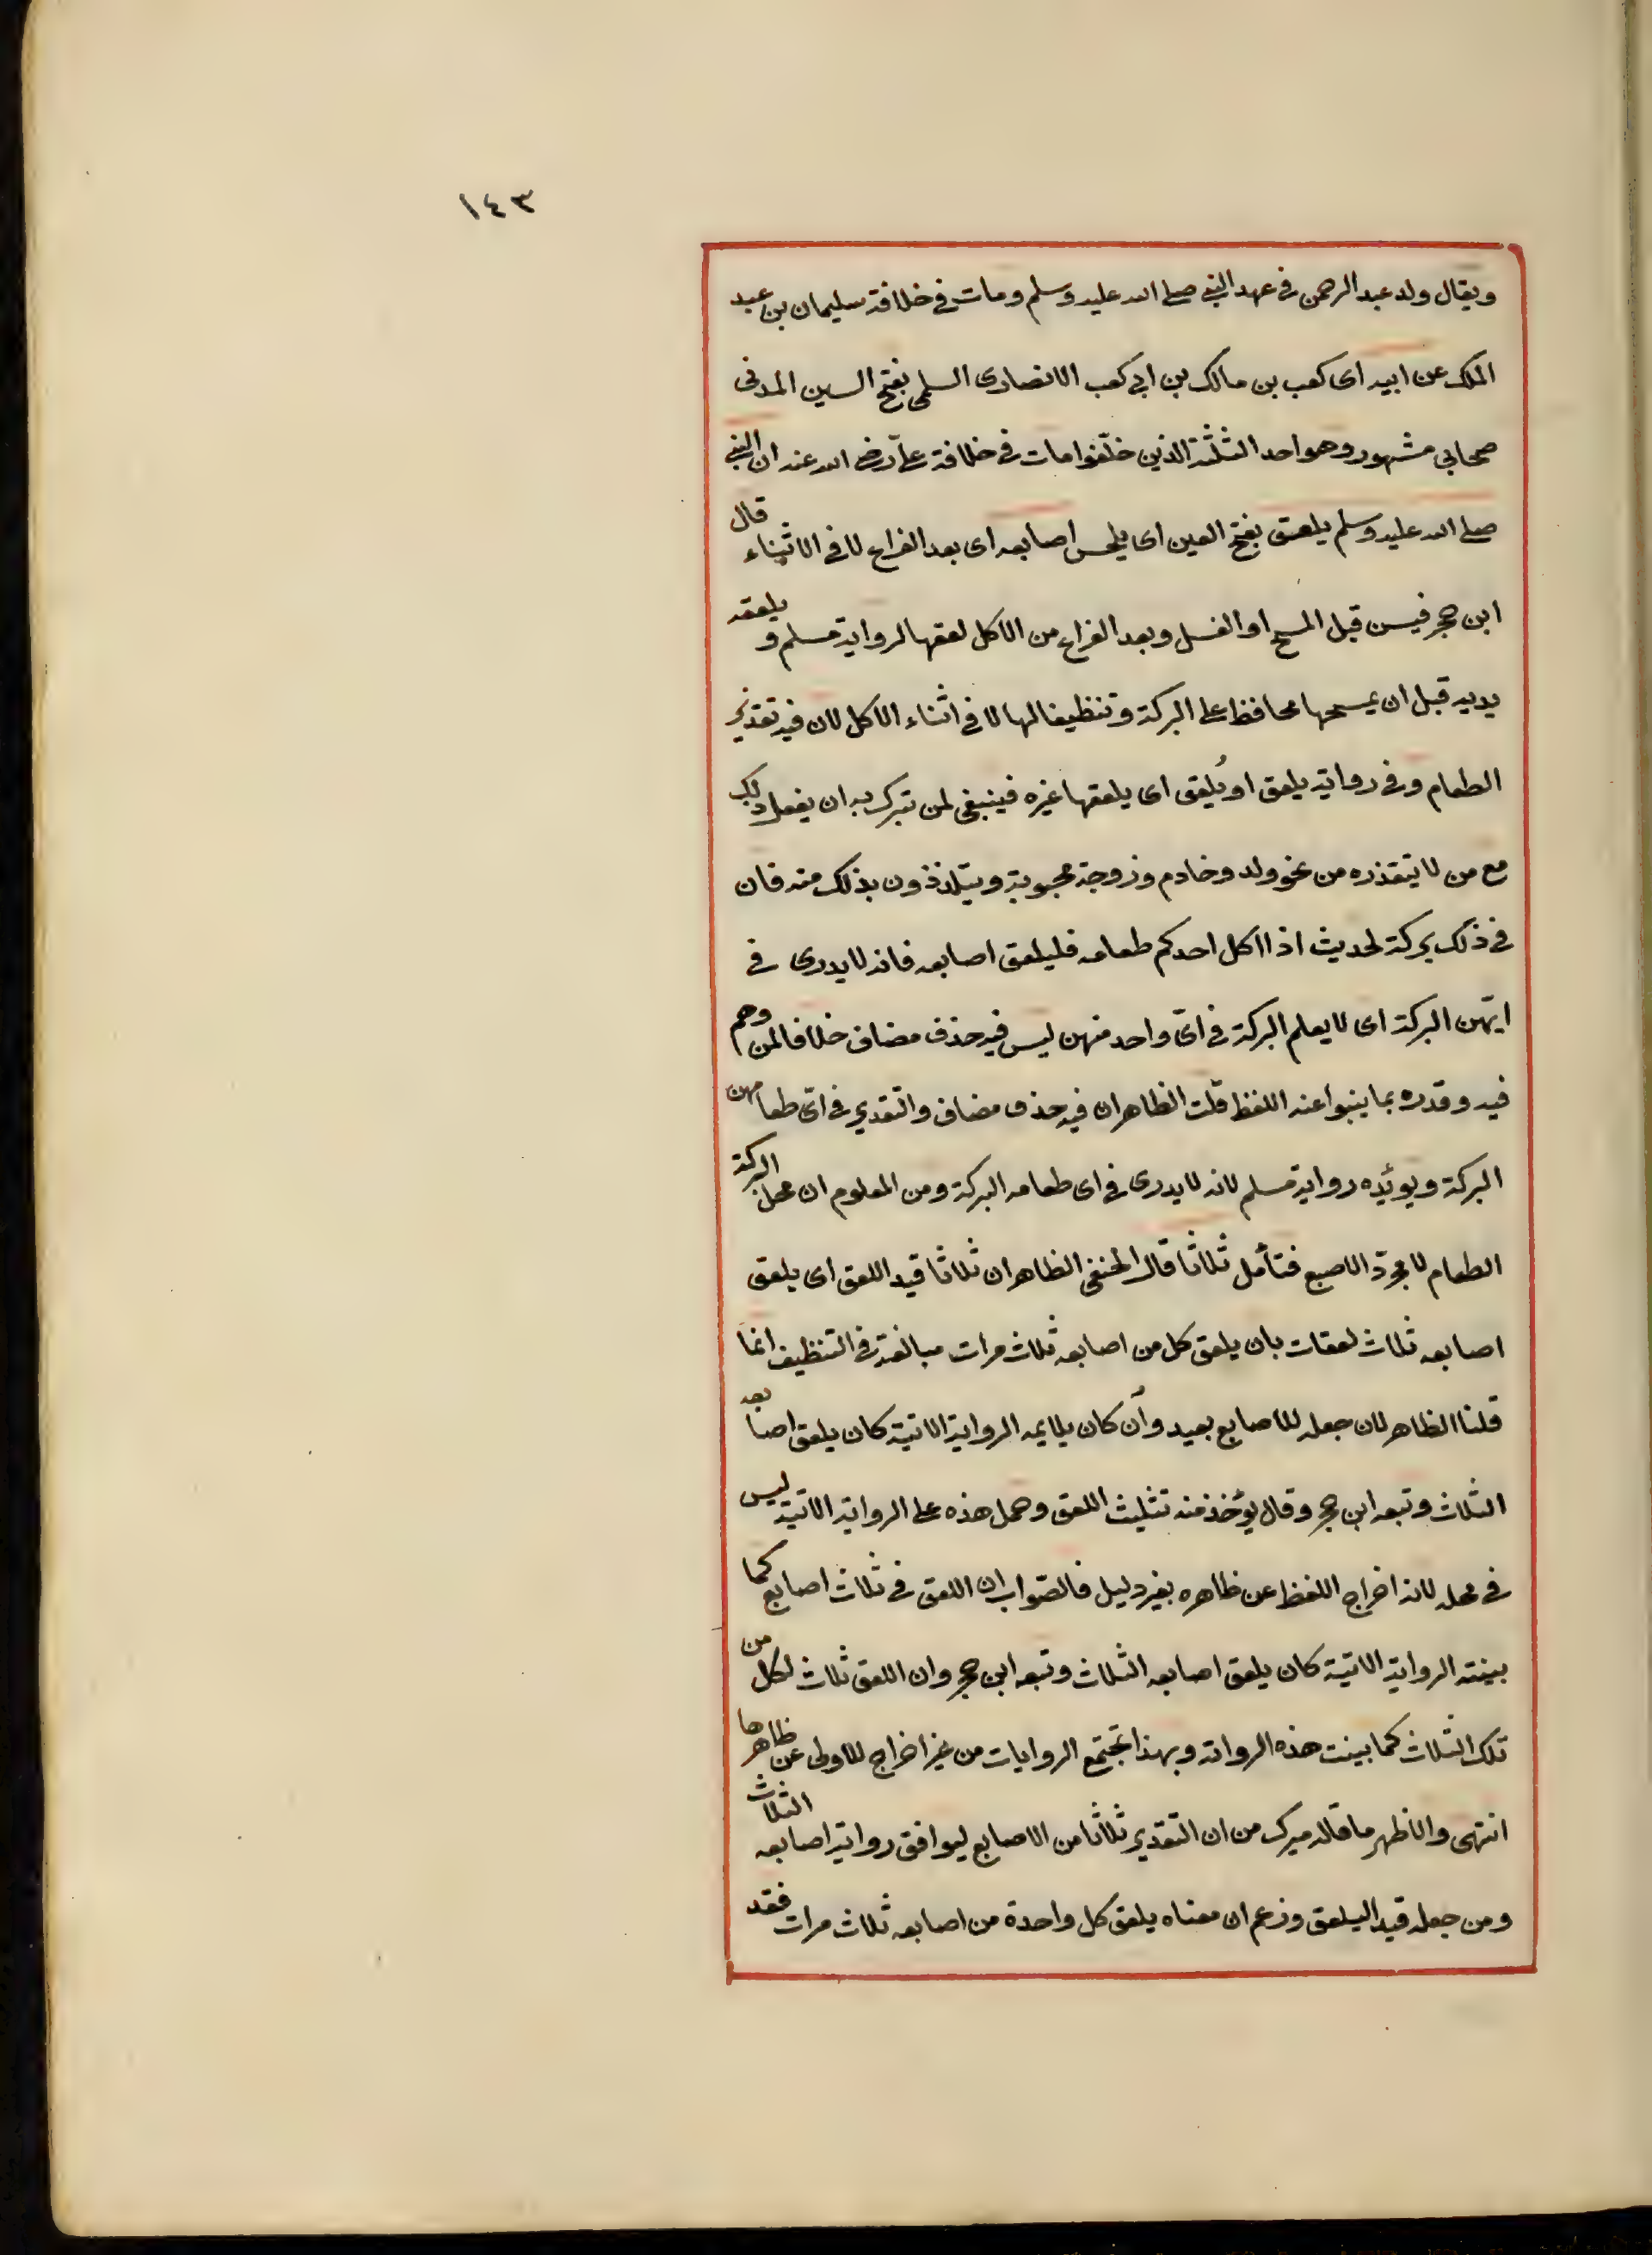 ١٤٣
ويقال ولد عبد الرحمن في عهد النبي صلى الله عليه وسلم ومات في خلافة سليمان بن عبد
الملك عن ابيه اى كعب بن مالك بن ابي كعب الانصارى السلمى بفتح السين المدنى
صحابي مشهور وهو احد الثلثة الذين خلّفوا مات في خلافة علىّ رضى الله عنه ان النبي
صلى الله عليه وسلم يلعق بفتح العين اى يلحس اصابعه اى بعد الفراغ لا في الاثناء قال
ابن حجر فيسن قبل المسح او الغسل وبعد الفراغ من الاكل لعقها لرواية مسلم و يلعقه
يديه قبل ان يمسحها محافظ على البركة وتنظيفا لها لا في اثناء الاكل لان فيه تقذير
الطعام وفي رواية يلعق او يُلعق اى يلعقها غيره فينبغي لمن تبرك به ان يفعل ذلك
مع من لا يتقذره من نحو ولد وخادم وزوجة محبوبة ويتلذذون بذلك منه فان
في ذلك بركة لحديث اذا اكل احدكم طعامه فليلعق اصابعه فانه لا يدرى في
ايّهن البركة اى لا يعلم البركة في اىّ واحد منهن ليس فيه حذف مضاف خلافا لمن وهم
فيه وقدره بما ينبوا عنه اللفظ قلت الظاهر ان فيه حذف مضاف والتقدير في اىّ طعامهن
البركة ويؤيّده رواية مسلم لانه لا يدرى في اى طعامه البركة ومن المعلوم ان محل البركة
الطعام لا مجرّد الاصبع فتأمل ثلاثا قال الحنفي الظاهر ان ثلاثا قيد اللعق اى يلعق
اصابعه ثلاث لعقات بان يلعق كل من اصابعه ثلاث مرات مبالغة في التنظيف انما
قلنا الظاهر لان جعله للاصابع بعيد وان كان يلايمه الرواية الاتية كان يلعق اصابعه
الثلاث وتبعه ابن حجر وقال يؤخذ منه تثليث اللعق وحمل هذه على الرواية الاتية ليس
في محله لانه اخراج اللفظ عن ظاهره بغير دليل فالصّواب ان اللعق في ثلاث اصابع كما
بينته الرواية الاتية كان يلعق اصابعه الثلاث وتبعه ابن حجر وان اللعق ثلاث لكل من
تلك الثلاث كما بينت هذه الرواية وبهذا تجتمع الروايات من غير اخراج للاولى عن ظاهرها
انتهى والاظهر ما قاله ميرك من ان التقدير ثلاثا من الاصابع ليوافق رواية اصابعه الثلاث
ومن جعله قيد اليلعق وزعم ان معناه يلعق كل واحدة من اصابعه ثلاث مرات فقد